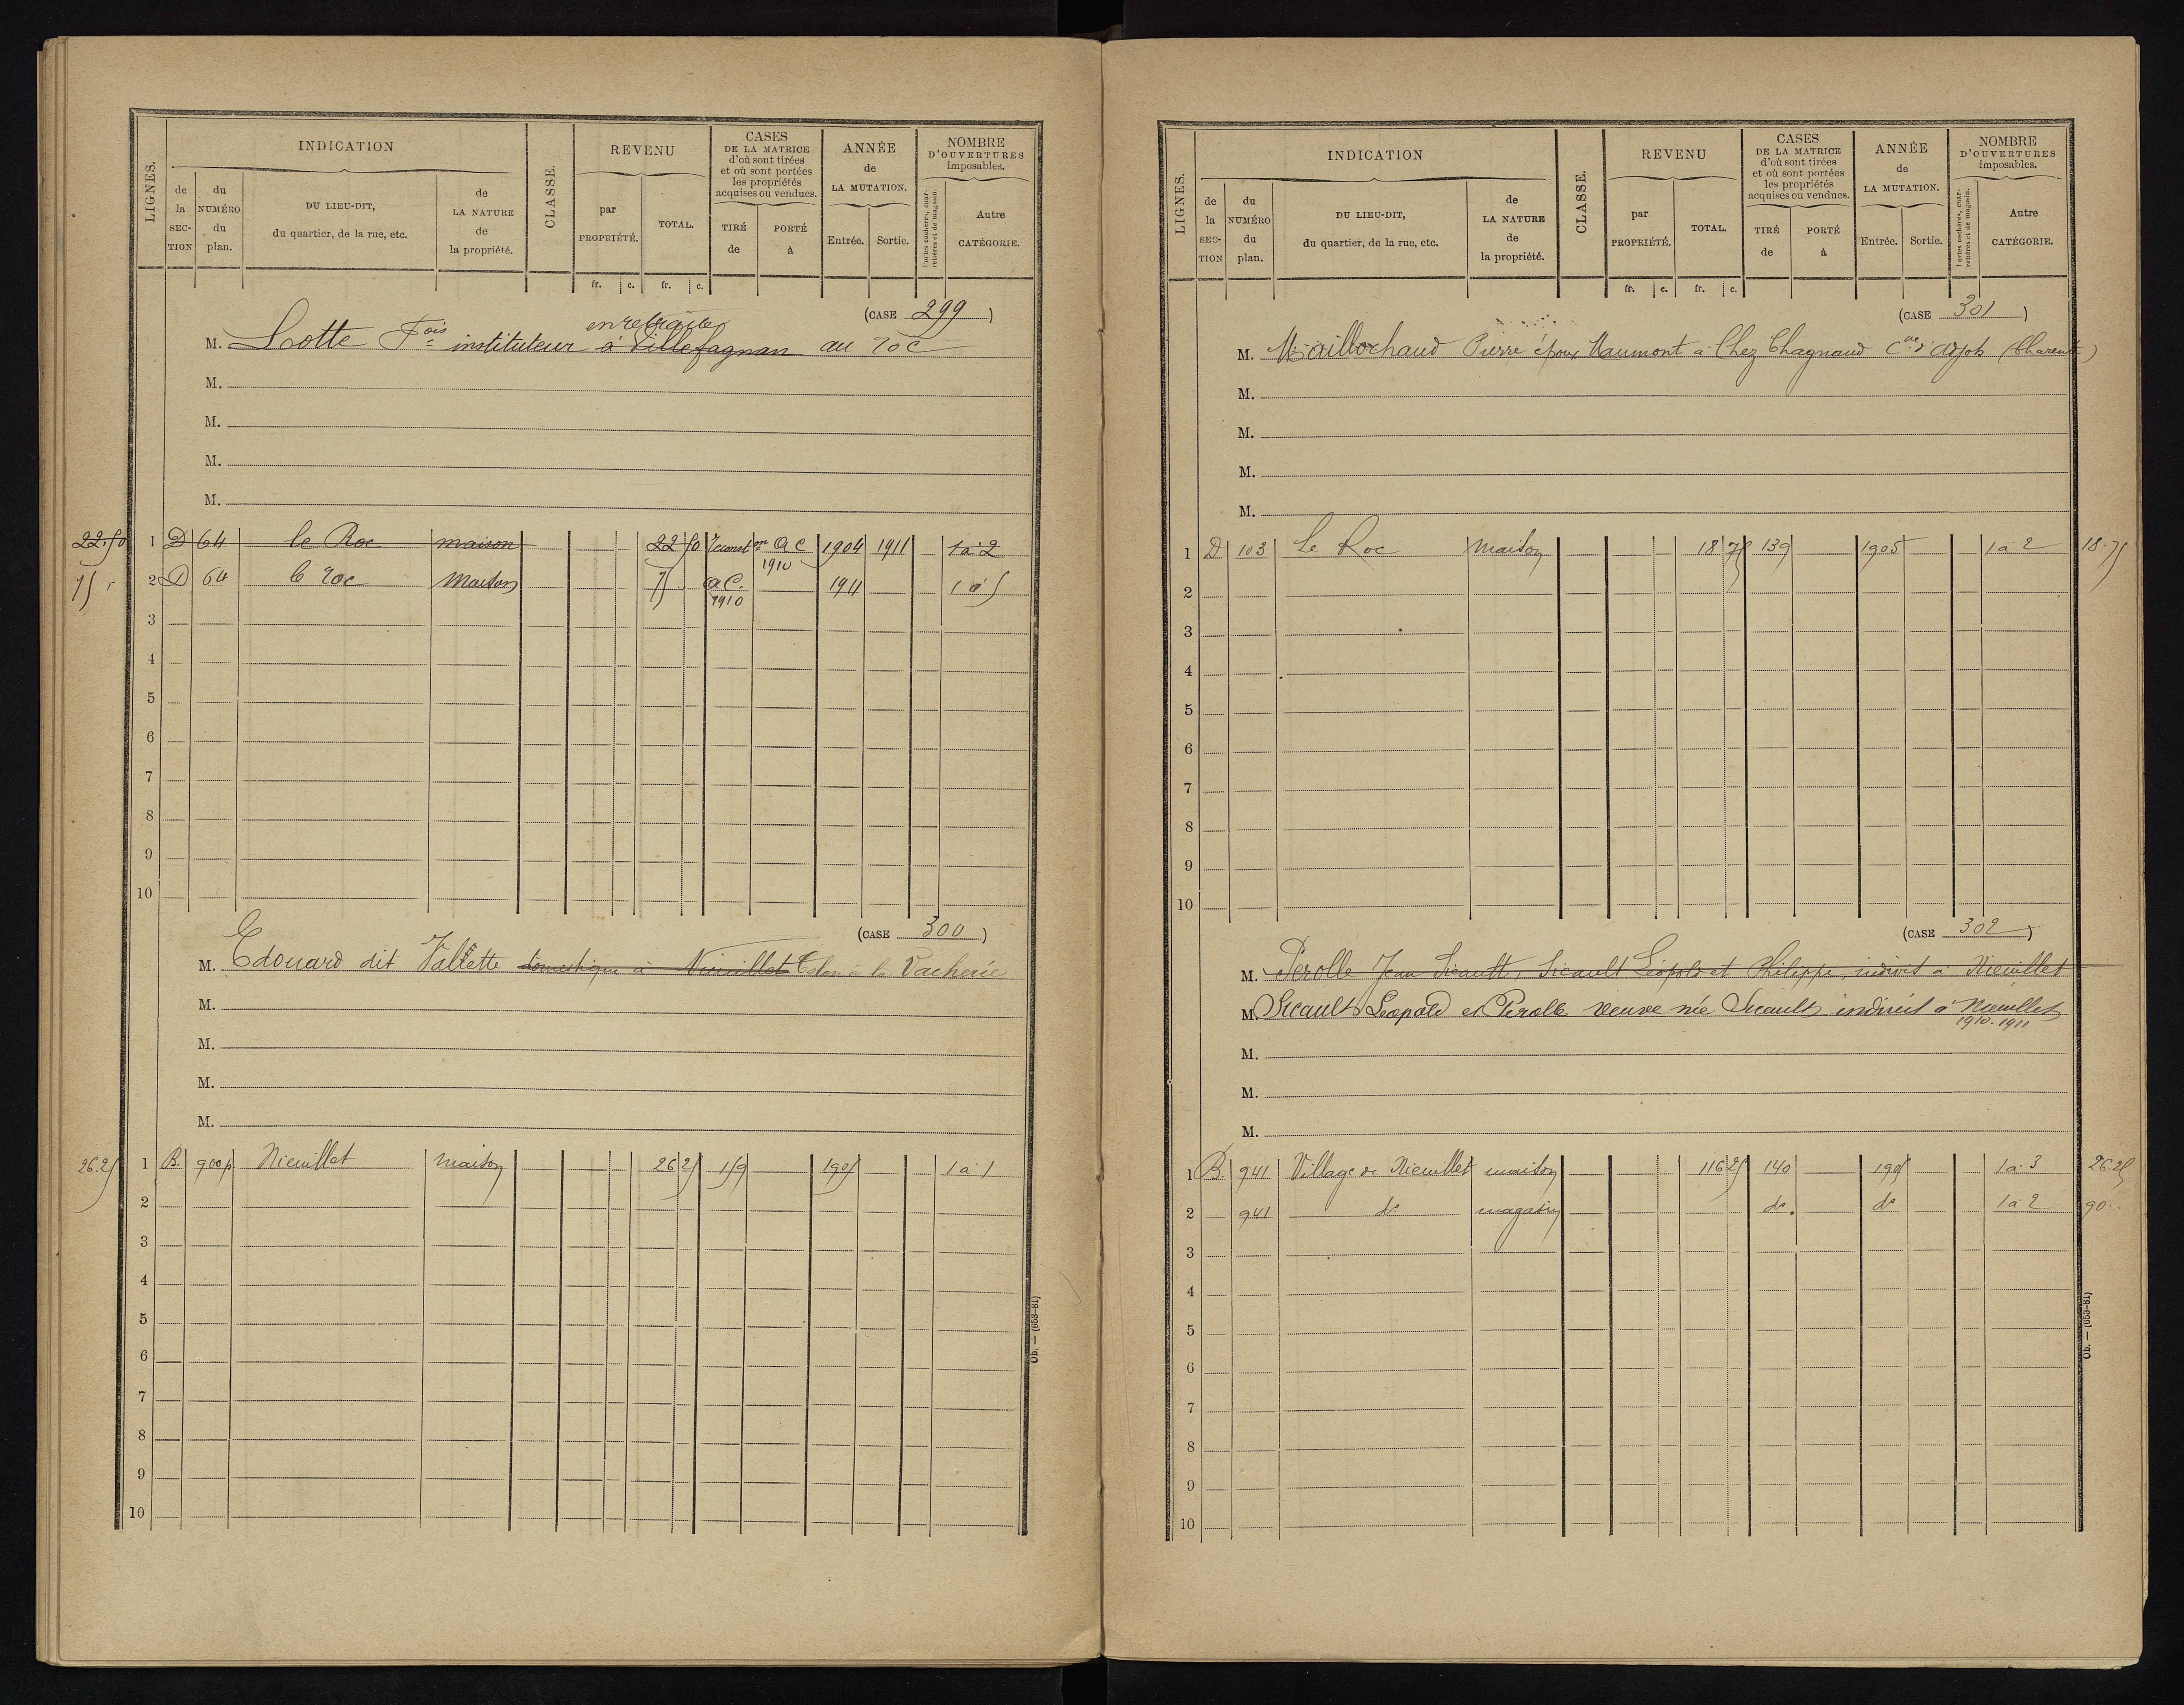 LIGNES.
INDICATION
de la SECTION
du NUMÉRO du plan.
DU LIEU-DIT, du quartier, de la rue, etc.
de LA NATURE de la propriété.
CLASSE.
REVENU
par PROPRIÉTÉ.
TOTAL.
CASES DE LA MATRICE d'où sont tirées et où sont portées les propriétés acquises ou vendues.
TIRÉ de
PORTÉ à
ANNÉE de LA MUTATION.
Entrée.
Sortie.
NOMBRE D'OUVERTURES imposables.
Portes cochères, charretières et de magasin.
Autre CATÉGORIE.
fr. c. fr. c.
(CASE 299)
en retraite
M. Lotte Fois instituteur à Villefagnan au roc
M.
M.
M.
M.
22.50 1 D 64 le Roc maison 22 50 Reconst on ac 1910 1904 1911 1 à 2
75 2 D 64 le roc Maison 75 ac. 1910 1911 1 à 5
3
4
5
6
7
8
9
10
(CASE 300)
M. Edouard dit Vallette domestique à Nieuillet Colon à la Vacherie
M.
M.
M.
M.
26.25 1 B. 900p. Nieuillet maison 26 25 159 1905 1 à 1
2
3
4
5
6
7
8
9
10
Ob. — (653-81)
LIGNES.
INDICATION
de la SECTION
du NUMÉRO du plan.
DU LIEU-DIT, du quartier, de la rue, etc.
de LA NATURE de la propriété.
CLASSE.
REVENU
par PROPRIÉTÉ.
TOTAL.
CASES DE LA MATRICE d'où sont tirées et où sont portées les propriétés acquises ou vendues.
TIRÉ de
PORTÉ à
ANNÉE de LA MUTATION.
Entrée.
Sortie.
NOMBRE D'OUVERTURES imposables.
Portes cochères, charretières et de magasin.
Autre CATÉGORIE.
fr. c. fr. c.
(CASE 301)
M. Maillochaud Pierre époux Naumont à Chez Chagnaud Cne d'Adjots (Charente)
M.
M.
M.
M.
1 D 103 Le Roc maison 18 75 139 1905 1 à 2 18.75
2
3
4
5
6
7
8
9
10
(CASE 302)
M. Perolle Jean Sicault, Sicault Léopold et Philippe, indivis à Nieuillet
M. Sicault Léopold et Perolle veuve née Sicault indivis à Nieuillet
1910.1911
M.
M.
M.
1 B. 941 Village de Nieuillet maison 116 25 140 1905 1 à 3 26.25
2 941 do magasin do. do 1 à 2 90..
3
4
5
6
7
8
9
10
Ob. — (653-81)